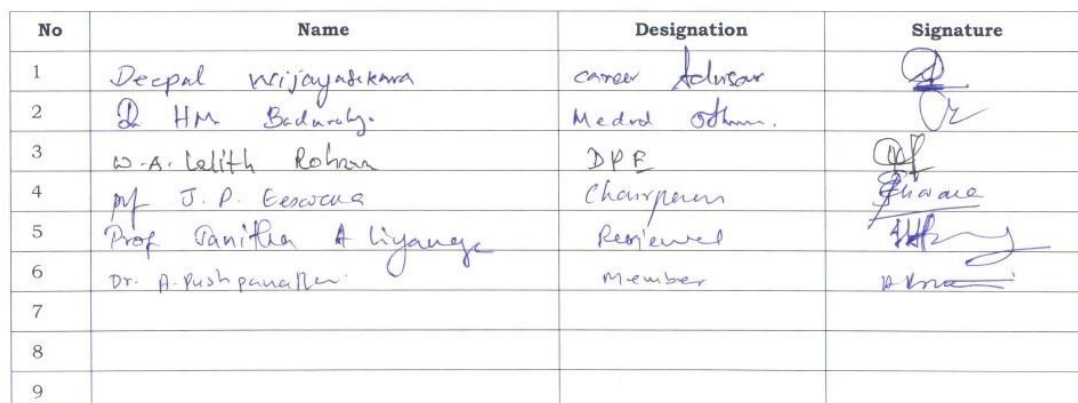 No Name Designation Signature
1 Deepal Wijayasekara career Advisor
2 Dr HM Medical
3 W.A. Lalith Rohan DPE
4 Prof J. P. Eeswara Chairperson
5 Prof Janitha A Liyanage Reviewer
6 Dr. A. Member
7
8
9